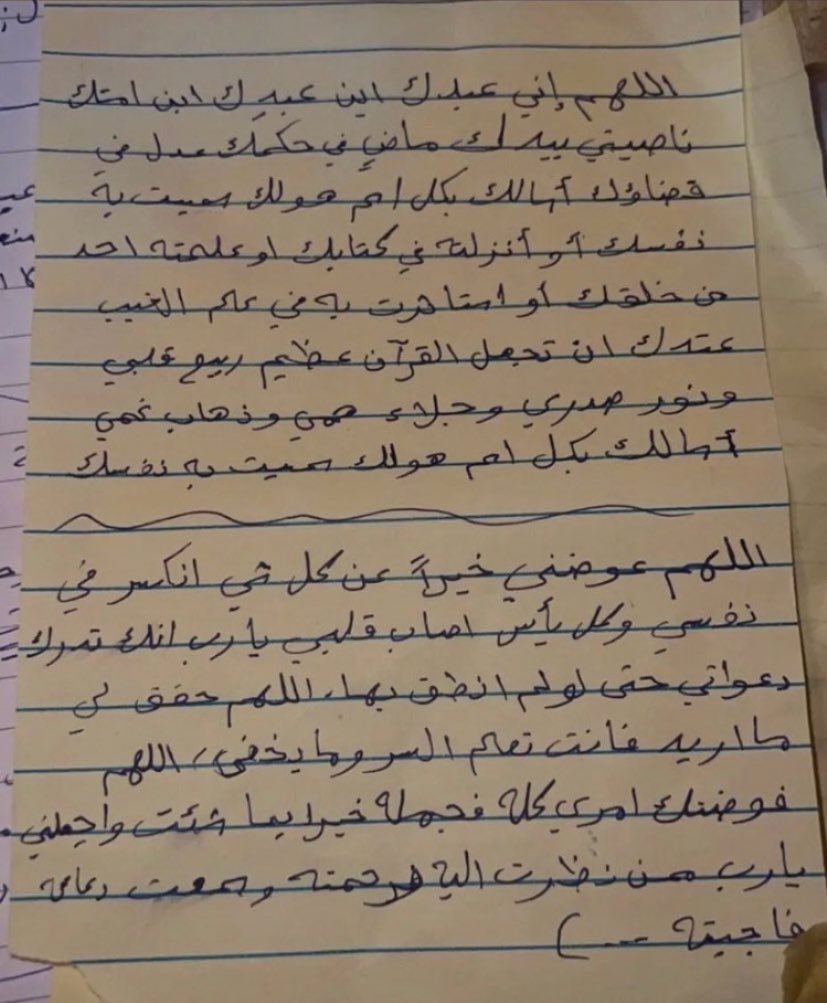 اللهم إني عبدك ابن عبدك ابن امتك
ناصيتي بيدك ماضٍ في حكمك عدل في
قضاؤك أسالك بكل اسم هو لك سميت به
نفسك أو أنزلته في كتابك او علمته احد
من خلقك أو استاثرت به في علم الغيب
عندك ان تجعل القرآن عظيم ربيع قلبي
ونور صدري وجلاء همي وذهاب غمي
أسالك بكل اسم هو لك سميت به نفسك
اللهم عوضني خيراً عن كل شي انكسر في
نفسي وكل يأس اصاب قلبي يارب انك تدرك
دعواتي حتى لو لم انطق بها، اللهم حقق لي
ما اريد فانت تعلم السر وما يخفى، اللهم
فوضتك امري كله فجمله خيرا بما شئت واجعلني
يارب ممن نظرت اليه فرحمته وسمعت دعائه
فاجبته --- )